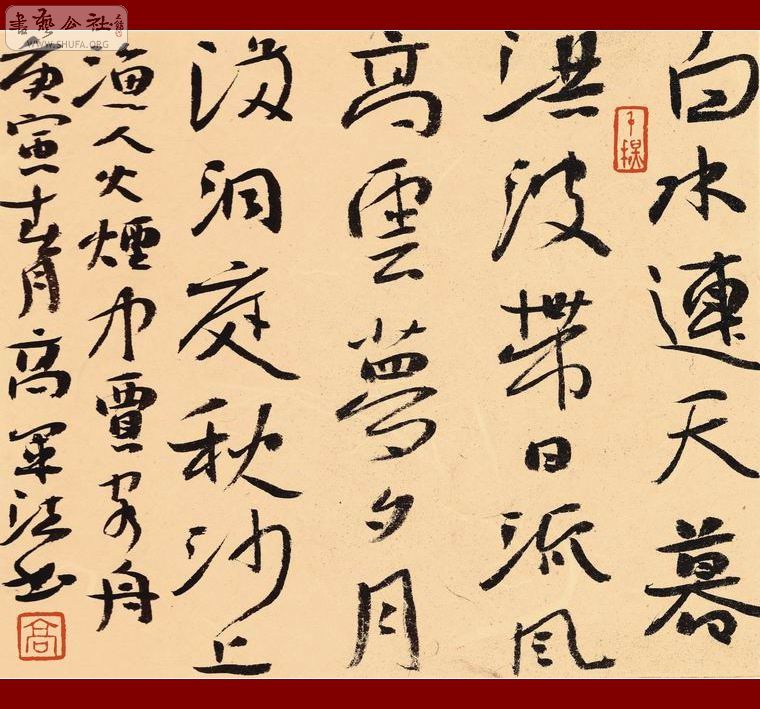 白水連天暮
洪波帶日流風
高雲夢夕月
没洞庭秋沙上
漁人火煙中賈客舟
庚寅春月高軍法書
高
書藝公社
WWW.SHUFA.ORG